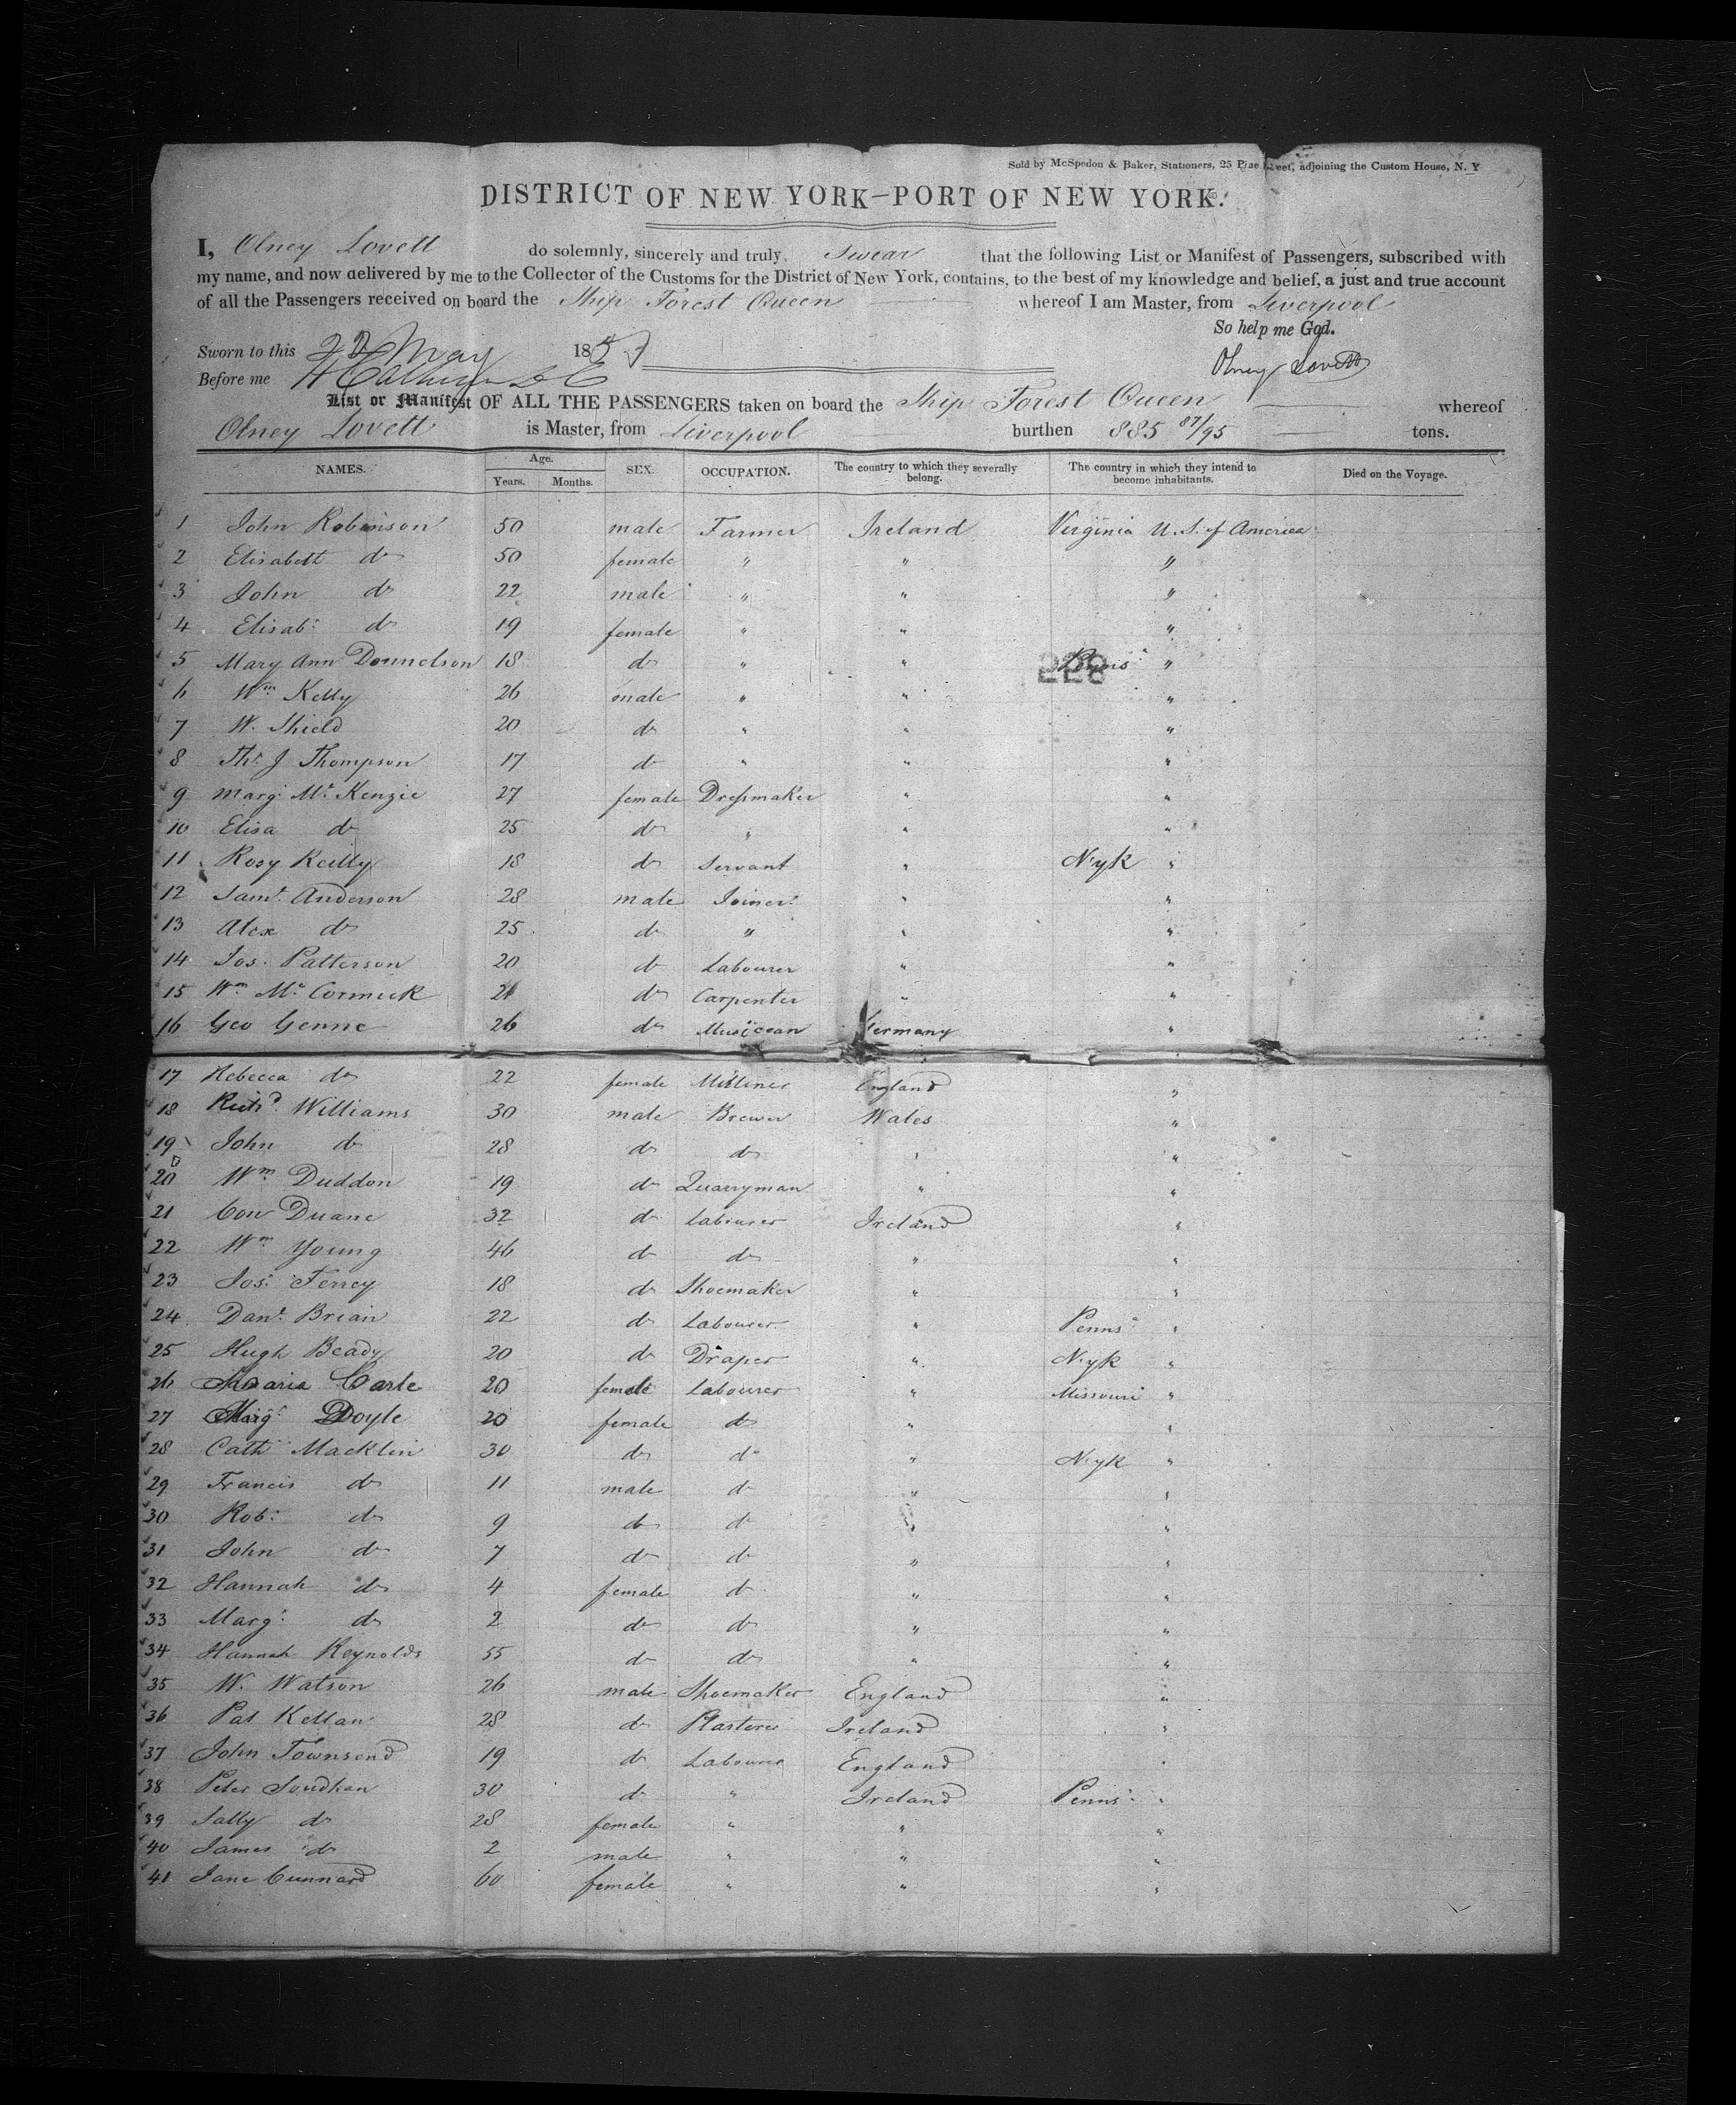 Sold by McSpedon & Baker, Stationers, 25 Pine Street, adjoining the Custom House, N. Y
DISTRICT OF NEW YORK—PORT OF NEW YORK.
I, Olney Lovett do solemnly, sincerely and truly Swear that the following List or Manifest of Passengers, subscribed with
my name, and now delivered by me to the Collector of the Customs for the District of New York, contains, to the best of my knowledge and belief, a just and true account
of all the Passengers received on board the Ship Forest Queen whereof I am Master, from Liverpool
So help me God.
Sworn to this 22 May 185
Olney Lovett
Before me
List or Manifest OF ALL THE PASSENGERS taken on board the Ship Forest Queen whereof
Olney Lovett is Master, from Liverpool burthen 885 87/95 tons.
NAMES. Age. Years. Months. SEX. OCCUPATION. The country to which they severally belong. The country in which they intend to become inhabitants. Died on the Voyage.
1 John Robinson 50 male Farmer Ireland Virginia U.S. of America
2 Elisabett do 50 female " " "
3 John do 22 male " " "
4 Elisab: do 19 female " " "
5 Mary Ann Donnelson 18 do " " Penns " 228
6 Wm Kelly 26 male " " "
7 W. Shield 20 do " " "
8 Ths J Thompson 17 do " " "
9 Marg Mc Kenzie 27 female Dressmaker " "
10 Elisa do 25 do " " "
11 Rosy Reilly 18 do Servant " N.yk "
12 Saml Anderson 28 male Joiner " "
13 Alex do 25 do " " "
14 Jos. Patterson 20 do Labourer " "
15 Wm Mc Cormick 21 do Carpenter " "
16 Geo Genne 26 do Musicean Germany "
17 Rebecca do 22 female Milliner England "
18 Richd Williams 30 male Brewer Wales "
19 John do 28 do do " "
20 Wm Duddon 19 do Quarryman " "
21 Con Duane 32 do Labourer Ireland "
22 Wm Young 46 do do " "
23 Jos: Ferrey 18 do Shoemaker " "
24 Danl Brian 22 do Labourer " Penns "
25 Hugh Beady 20 do Draper " N.yk "
26 Maria Carle 20 female Labourer " Missouri "
27 Marg: Doyle 20 female do " "
28 Cath Macklin 30 do do " N.yk "
29 Francis do 11 male do " "
30 Rob: do 9 do do " "
31 John do 7 do do " "
32 Hannah do 4 female do " "
33 Marg: do 2 do do " "
34 Hannah Reynolds 55 do do " "
35 W. Watson 26 male Shoemaker England "
36 Pat Kellan 28 do Plasterer Ireland "
37 John Townsend 19 do Labourer England "
38 Peter Soudhan 30 do " Ireland Penns "
39 Sally do 28 female " " "
40 James do 2 male " " "
41 Jane Cunnard 60 female " " "